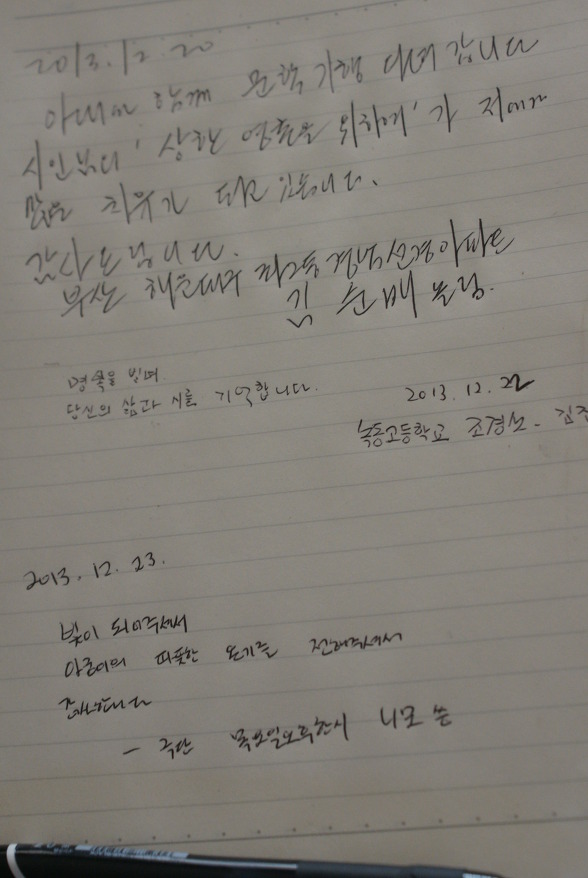 2013. 12. 20
아내와 함께 문학기행 다녀 갑니다
시인님의 '상한 영혼을 위하여'가 저에게
많은 치유가 되고 있습니다.
감사드립니다.
부산 해운대구 좌2동 경남선경아파트
김 순배 올림.
명복을 빌며
당신의 삶과 시를 기억합니다.
2013. 12. 22
녹동고등학교 조경
2013. 12. 23.
빛이 되어주셔서
아궁이의 따뜻한 온기를 전해주셔서
감사합니다
- 극단 목요일오후한시 니모 씀